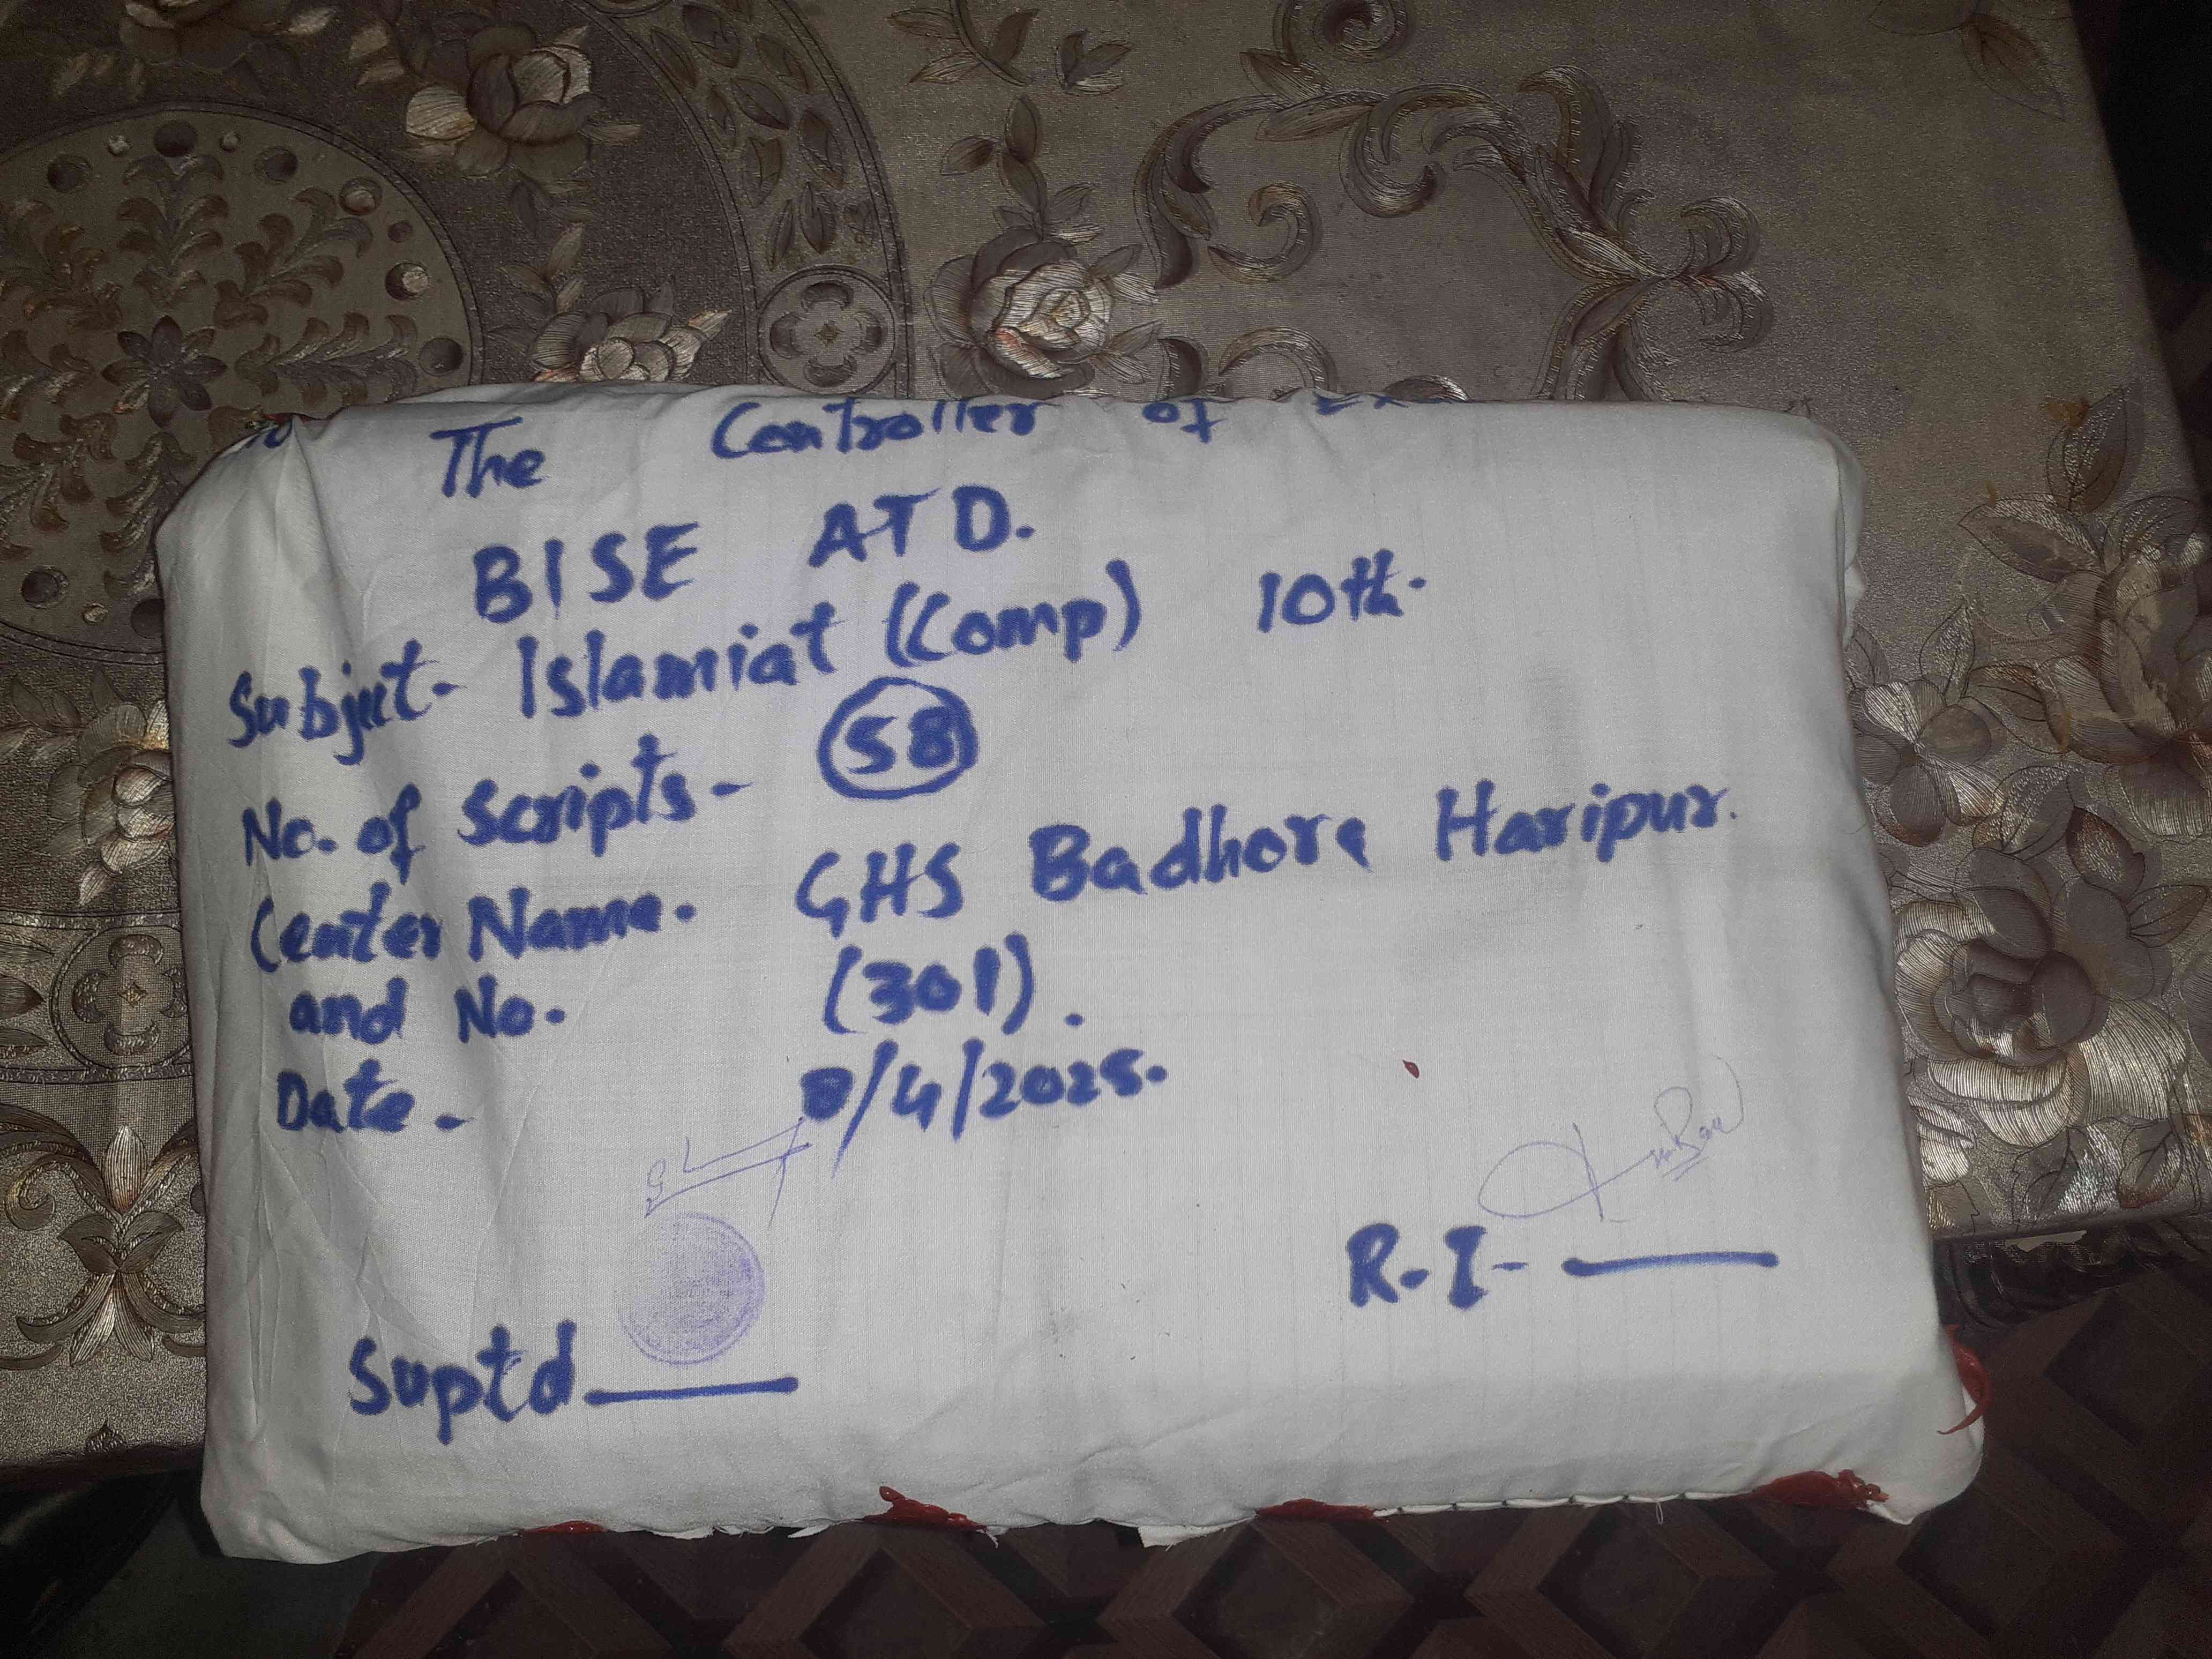 To
The Controller of Ex
BISE ATD.
Subject- Islamiat (Comp) 10th.
No. of Scripts- 58
Center Name. GHS Badhora Haripur.
and No. (301).
Date. 8/4/2025.
R.I-
Suptd